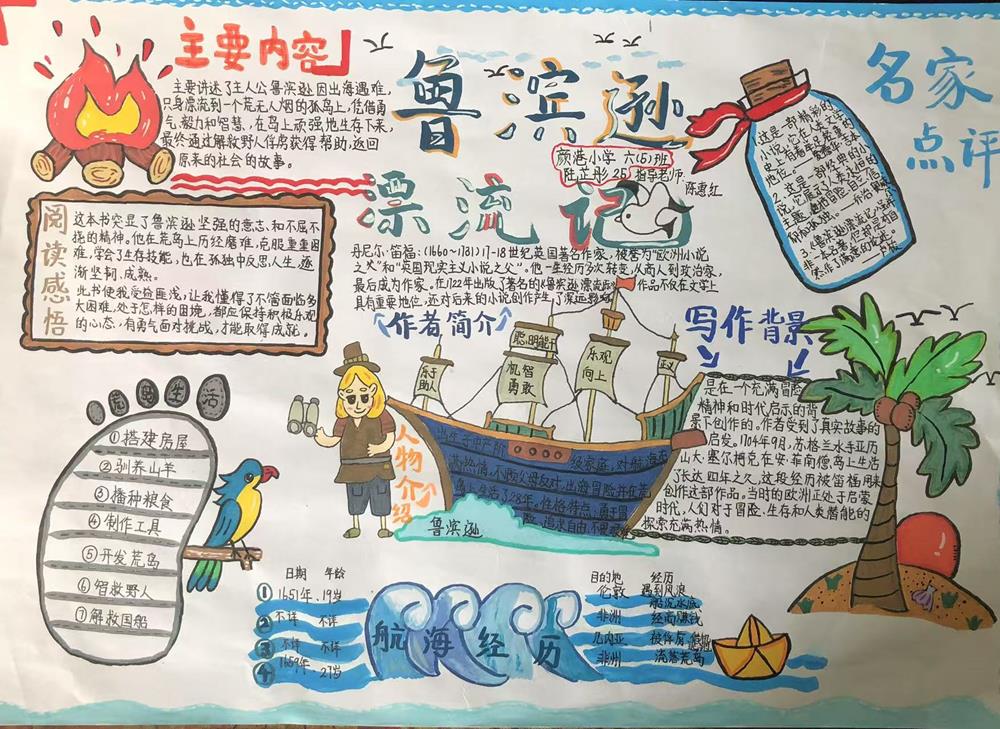 主要内容
主要讲述了主人公鲁滨逊因出海遇难,
只身漂流到一个荒无人烟的孤岛上,凭借勇
气、毅力和智慧,在岛上顽强地生存下来,
最终通过解救野人俘虏获得帮助,返回
原来的社会的故事。
鲁滨逊
漂流记
颜港小学 六(5)班
陆芷彤 25 指导老师:
陈惠红
名家
点评
这是一部精彩的
小说
地位。
阅读感悟
这本书突显了鲁滨逊坚强的意志、和不屈不
挠的精神。他在荒岛上历经磨难,克服重重困
难,学会了生存技能,也在孤独中反思人生,逐
渐坚韧、成熟。
此书使我受益匪浅,让我懂得了不管面临多
大困难,处于怎样的困境,都应保持积极乐观
的心态,有勇气面对挑战,才能取得成就。
丹尼尔·笛福:(1660~1731)17-18世纪英国著名作家,被誉为“欧洲小说
之父”和“英国现实主义小说之父”。他一生经历多次转变,从商人到政治家,
最后成为作家。在1722年出版了著名的《鲁滨逊漂流记》 作品不仅在文学上
具有重要地位,还对后来的小说创作产生了深远影响
作者简介
写作背景
是在一个充满冒险
精神和时代启示的背
景下创作的。作者受到了真实故事的
启发。1704年9月,苏格兰水手亚历
山大·塞尔柯克在安·菲南德岛上生活
了长达四年之久,这段经历被笛福用来
创作这部作品。当时的欧洲正处于启蒙
时代,人们对于冒险、生存和人类潜能的
探索充满热情。
乐于
助人
聪明能干
机智
勇敢
乐观
向上
正义
人物介绍
出生于中产阶 级家庭,对航海充
满热情,不顾父母反对,出海冒险并在荒
岛上生活了28年。性格特点:勇于冒
险、追求自由、不畏
鲁滨逊
荒岛生活
①搭建房屋
②驯养山羊
③播种粮食
④制作工具
⑤开发荒岛
⑥智救野人
⑦解救国船
航海经历
日期 年龄 目的地 经历
① 1651年、19岁 伦敦 遇到风浪
船沉水底
② 不详 不详 非洲 经商赚钱
③ 不详 不详 几内亚 被俘房
④ 1659年、27岁 非洲 流落荒岛